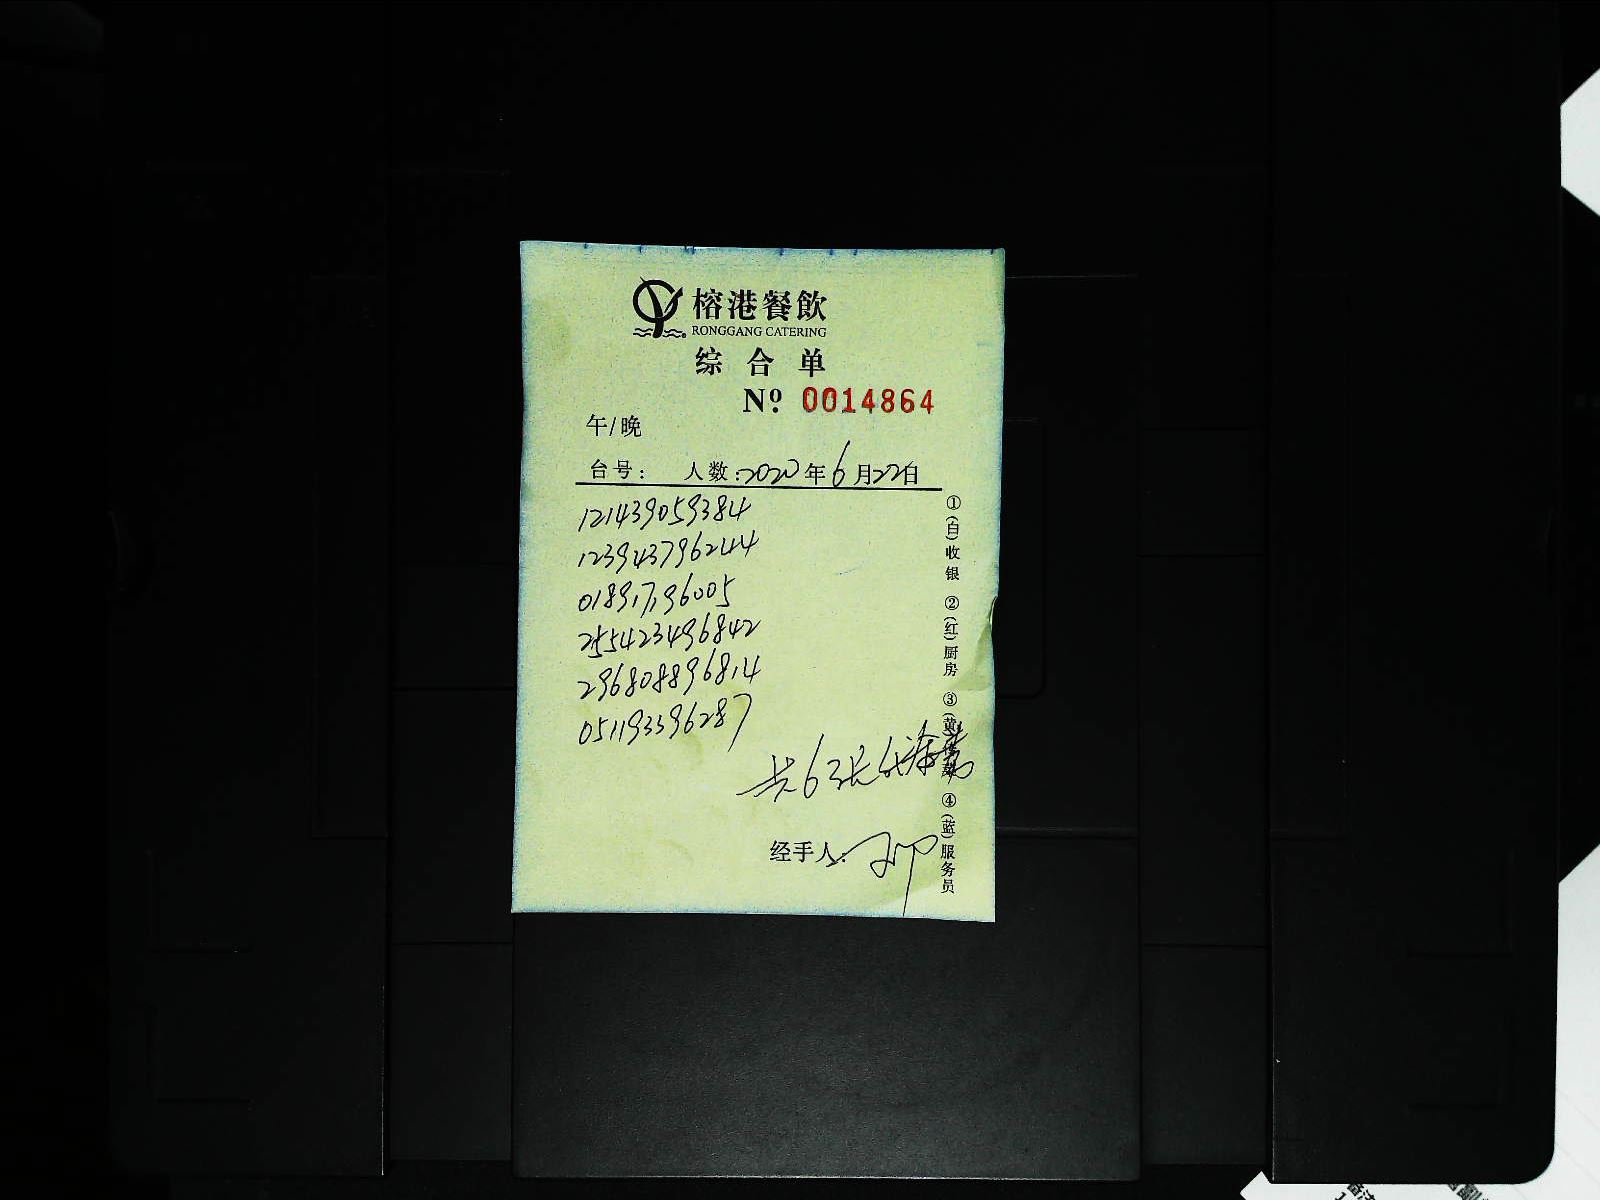 榕港餐飲
RONGGANG CATERING
综合单
Nº 0014864
午/晚
台号: 人数:2020年6月22日
121439059384
123943796244
018917196005
255423496842
296808896814
051193396287
共6张
经手人:
①(白)收银 ②(红)厨房 ③(黄) ④(蓝)服务员